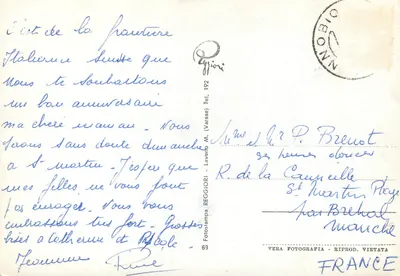 c'est de la frontière
Italienne Suisse que
nous te souhaitons
un bon anniversaire
ma chère maman. Nous
serons sans doute dimanche
à St Martin. J'espère que
mes filles ne vous font
pas enrager. Nous vous
embrassons très fort. Grosses
bises à Catherine et
Jeannine
Reggiori
NNOBIO
63 Fototempo REGGIORI - Laveno M. (Varese) Tel. 192
Mme et Mr P. Brenot
R. de la
St Martin Plage
par Bréhal
Manche
VERA FOTOGRAFIA - RIPROD. VIETATA
FRANCE